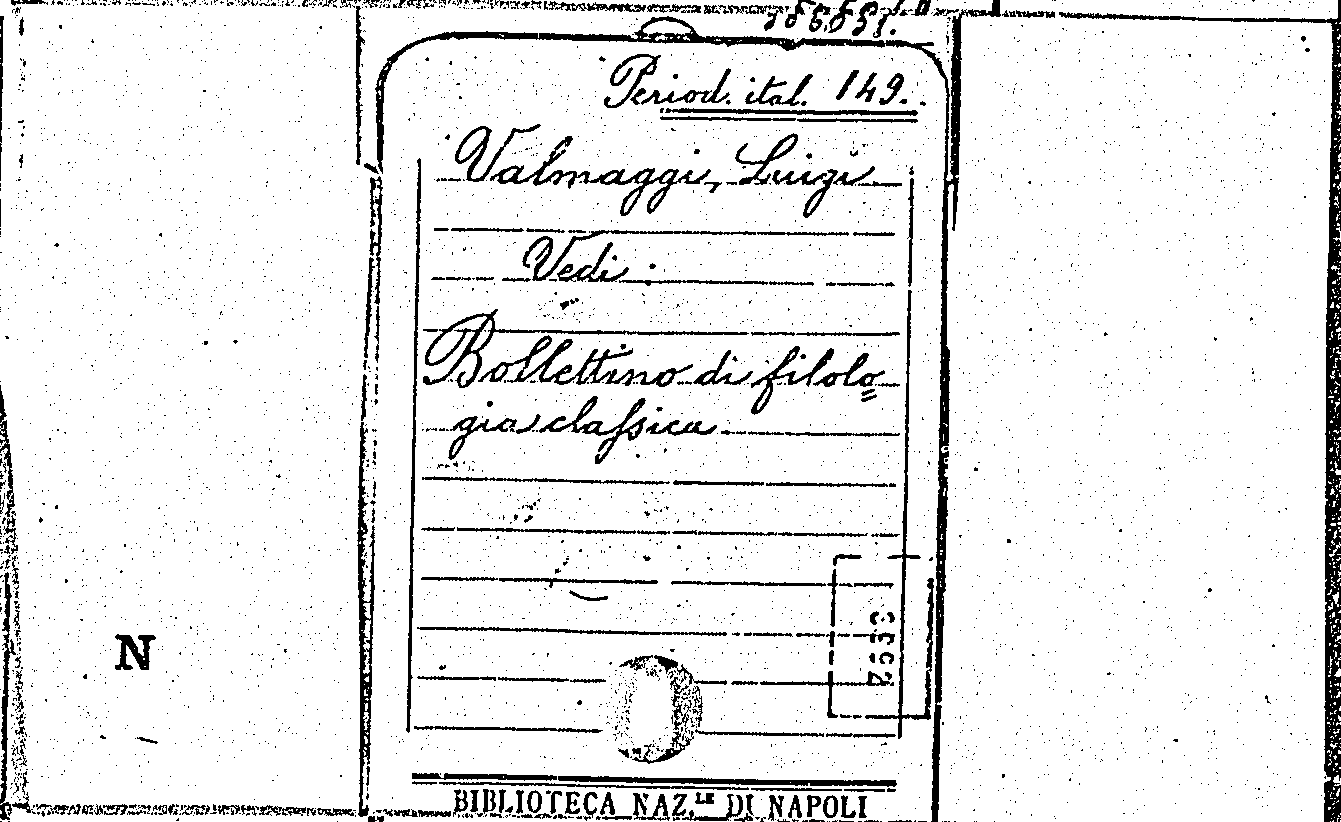 Period. ital. 149.
Valmaggi, Luigi
Vedi:
Bollettino di filolo=
gia classica.
N
BIBLIOTECA NAZ.LE DI NAPOLI